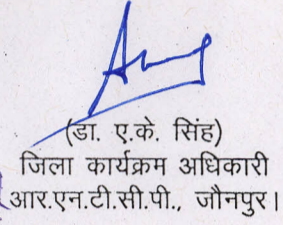 (डा. ए.के. सिंह)
जिला कार्यक्रम अधिकारी
आर.एन.टी.सी.पी., जौनपुर।